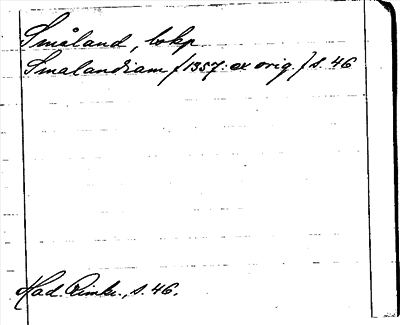 Småland, lskp
Smalandiam [1357: ex orig.] s. 46
Had. Rimkr., s. 46.